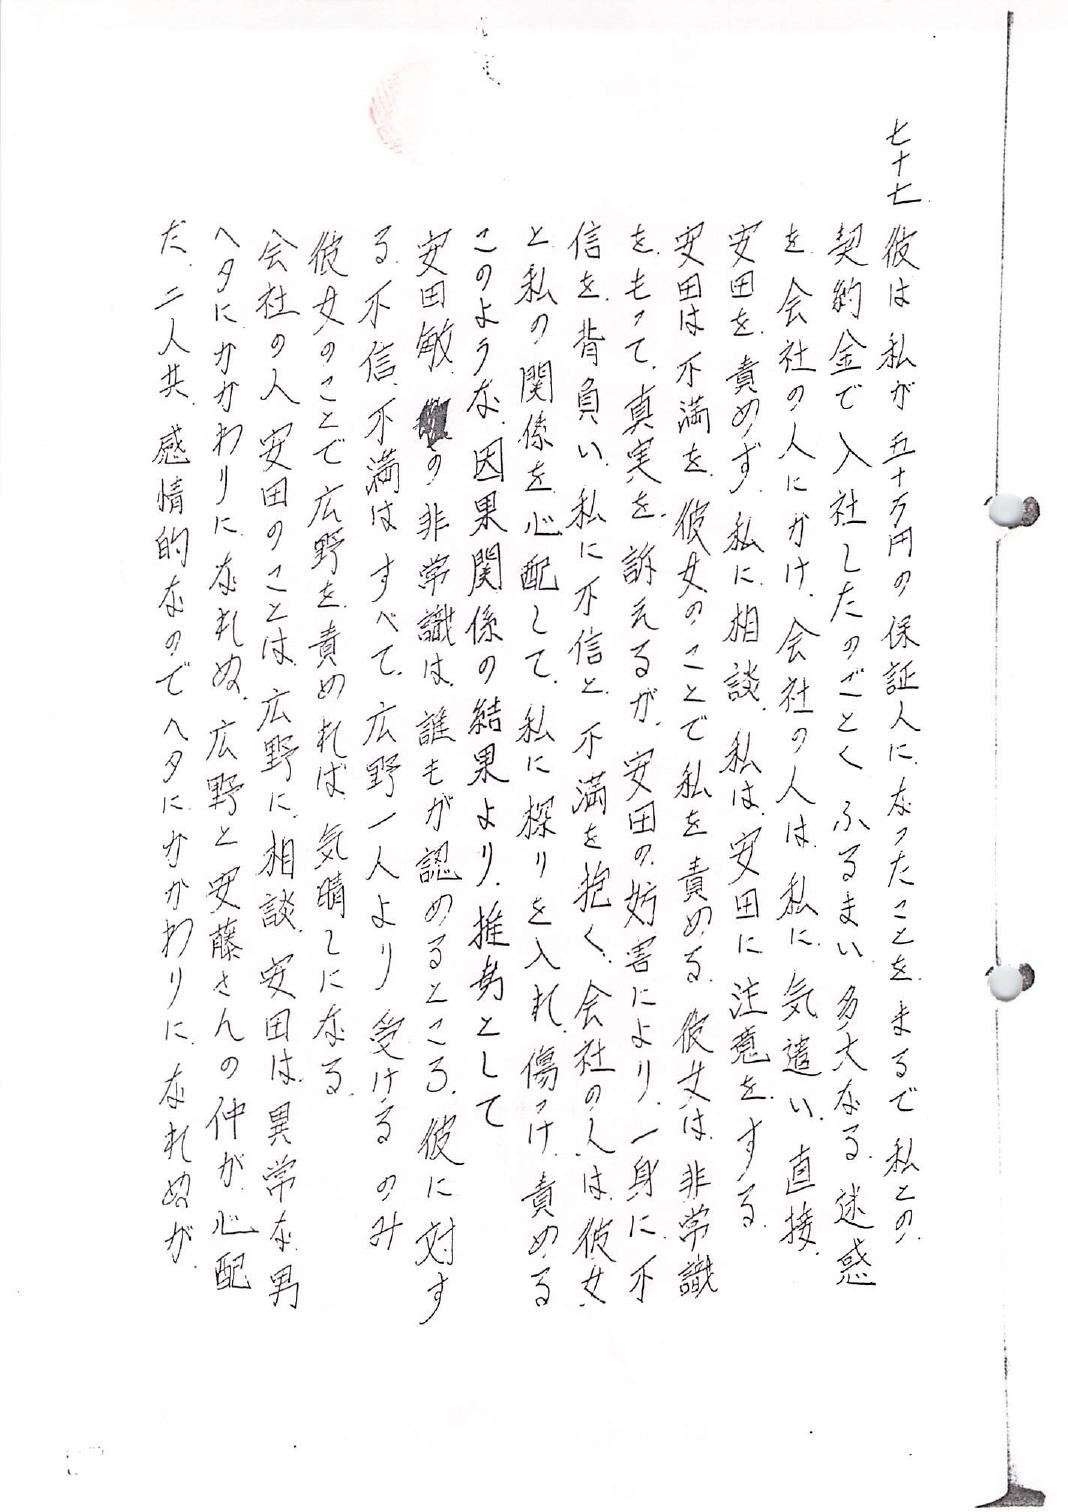 七十七
彼は私が五十万円の保証人になったことをまるで私との
契約金で入社したのごとくふるまい、多大なる迷惑
を会社の人にかけ、会社の人は、私に気遣い、直接、
安田を責めず、私に相談、私は、安田に注意をする、
安田は不満を、彼女のことで私を責める、彼女は、非常識
をもって、真実を、訴えるが、安田の妨害により、一身に不
信を、背負い、私に不信と、不満を抱く、会社の人は、彼女
と私の関係を心配して、私に探りを入れ、傷つけ、責める
このような、因果関係の結果より、推努として
安田敏の非常識は、誰もが認めるところ、彼に対す
る不信、不満はすべて、広野一人より受けるのみ
彼女のことで広野を責めれば、気晴しになる、
会社の人、安田のことは、広野に、相談、安田は、異常な男
ヘタにかかわりに、なれぬ、広野と安藤さんの仲が、心配
だ、二人共、感情的なのでヘタにかかわりに、なれぬが、